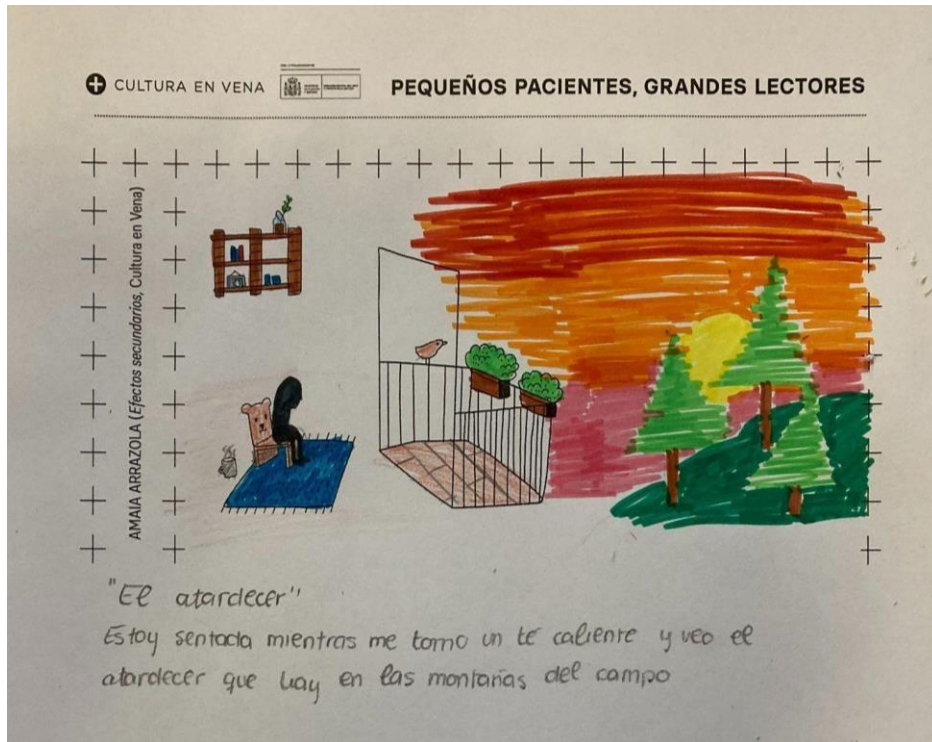 CULTURA EN VENA
PEQUEÑOS PACIENTES, GRANDES LECTORES
AMAIA ARRAZOLA (Efectos secundarios, Cultura en Vena)
"El atardecer"
Estoy sentada mientras me tomo un té caliente y veo el
atardecer que hay en las montañas del campo